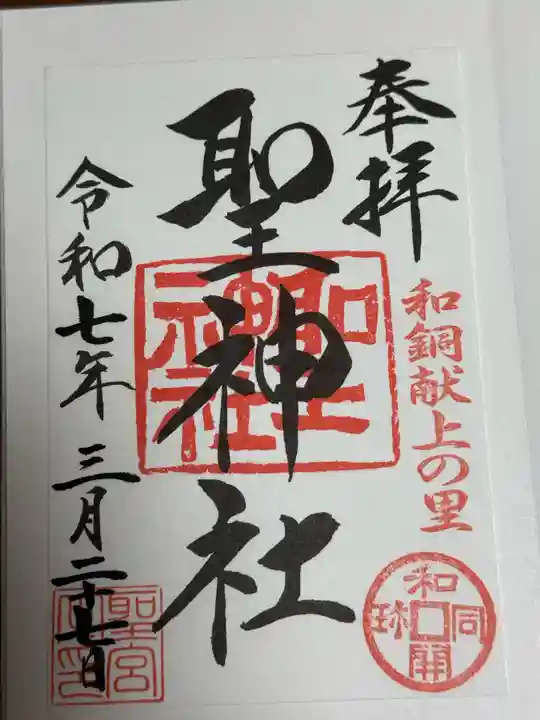 奉拝
和銅献上の里
和同開珎
聖神社
聖神社
令和七年三月二十七日